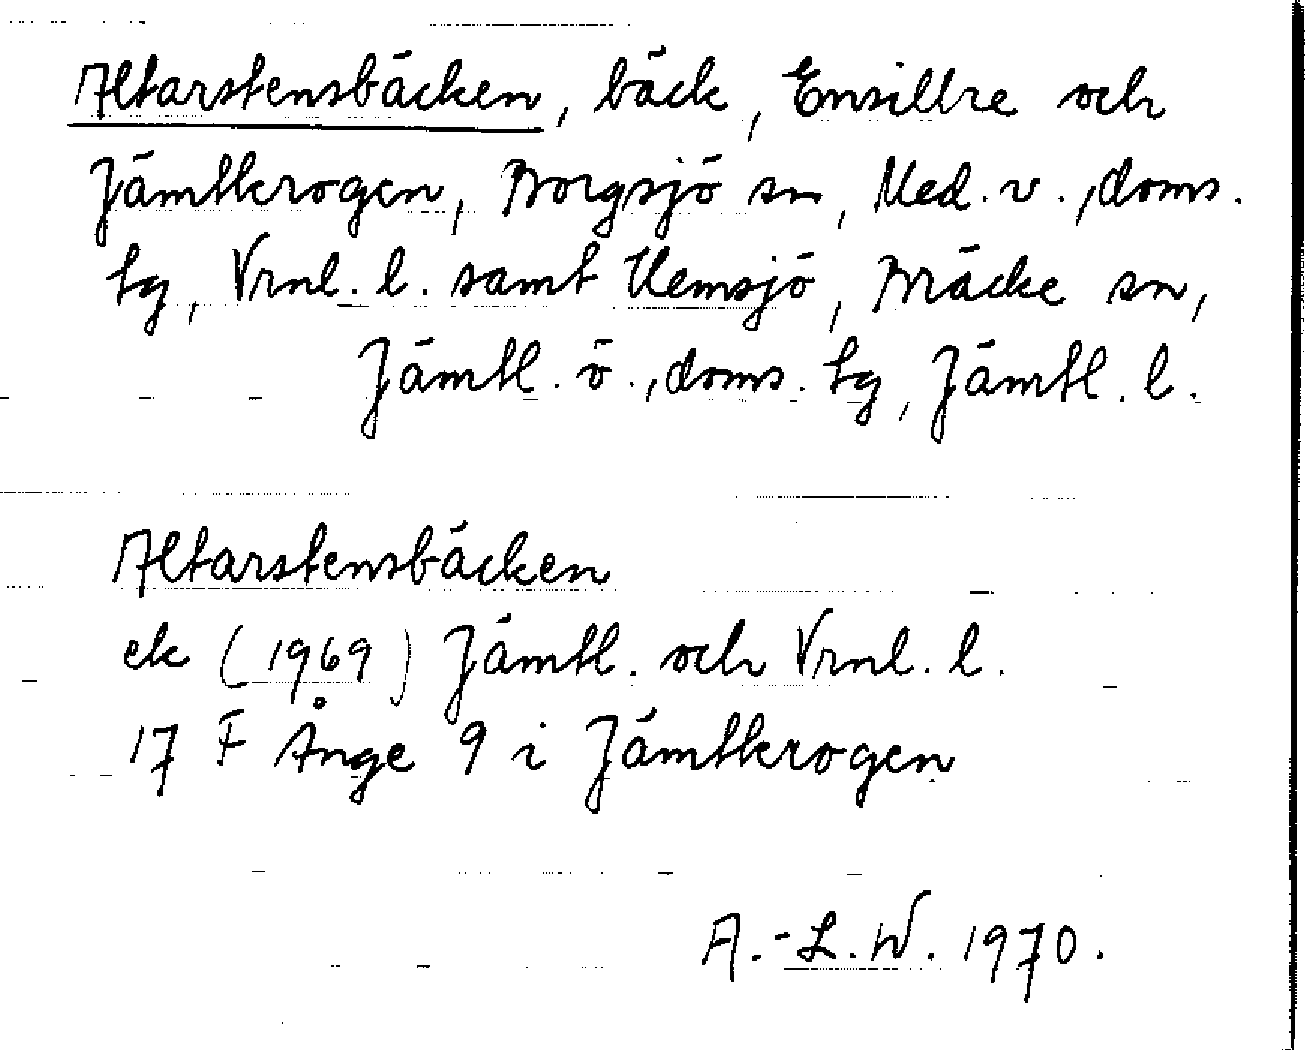 Altarstensbäcken, bäck, Ensillre och
Jämtkrogen, Borgsjö sn, Med. v., doms.
tg, Vrnl. l. samt Uemsjö, Bräcke sn,
Jämtl. ö., doms. tg, Jämtl. l.
Altarstensbäcken
ek (1969) Jämtl. och Vrnl. l.
17 F Ånge 9 i Jämtkrogen
A.-L.W. 1970.